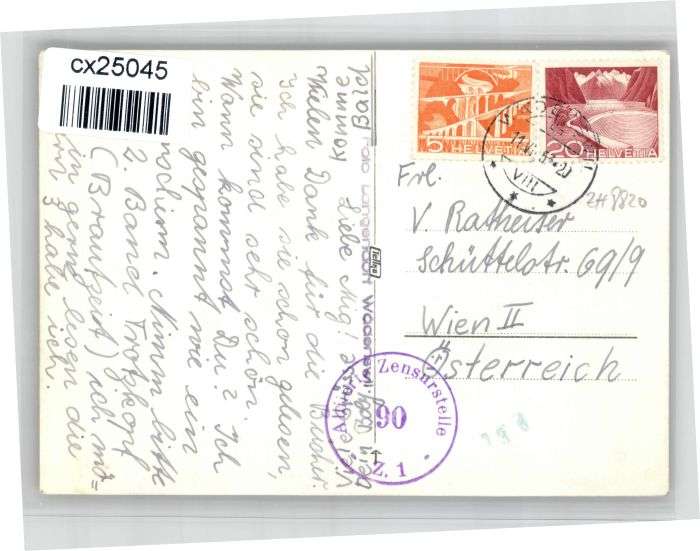 cx25045
Liebe Mug!
Vielen Dank für die Bücher.
Ich habe sie schon gelesen,
sie sind sehr schön.
Wann kommst Du? Ich
bin gespannt wie ein
Nimm bitte
2. Band Trotzkopf
(Brautzeit) ich mö=
gern lesen die
3 habe ich.
Komme
Bald
Foto Langendorf Wädenswil
5 HELVETIA
20 HELVETIA
WÄDENSWIL
VIII
Frl.
V. Ratheiser
Schüttelstr. 69/9
Wien II
Österreich
ZH 8820
Alliierte Zensurstelle
90
Z. 1